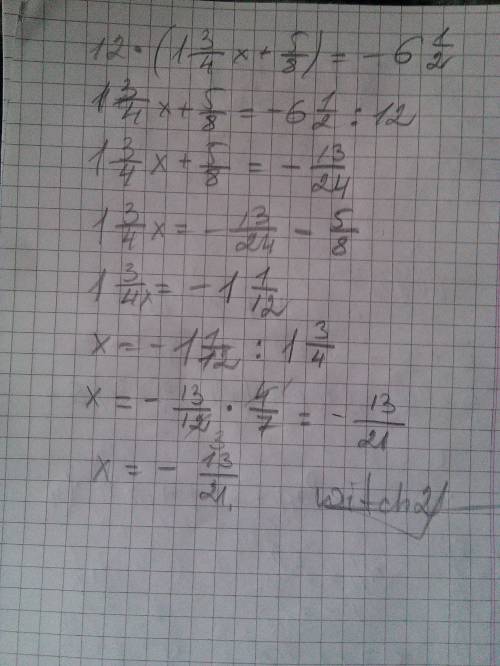 12 · (1 3/4 x + 5/8) = - 6 1/2
1 3/4 x + 5/8 = - 6 1/2 : 12
1 3/4 x + 5/8 = - 13/24
1 3/4 x = - 13/24 - 5/8
1 3/4 x = - 1 1/12
x = - 1 1/12 : 1 3/4
x = - 13/12 3 · 4 1/7 = - 13/21
x = - 13/21.
witch21